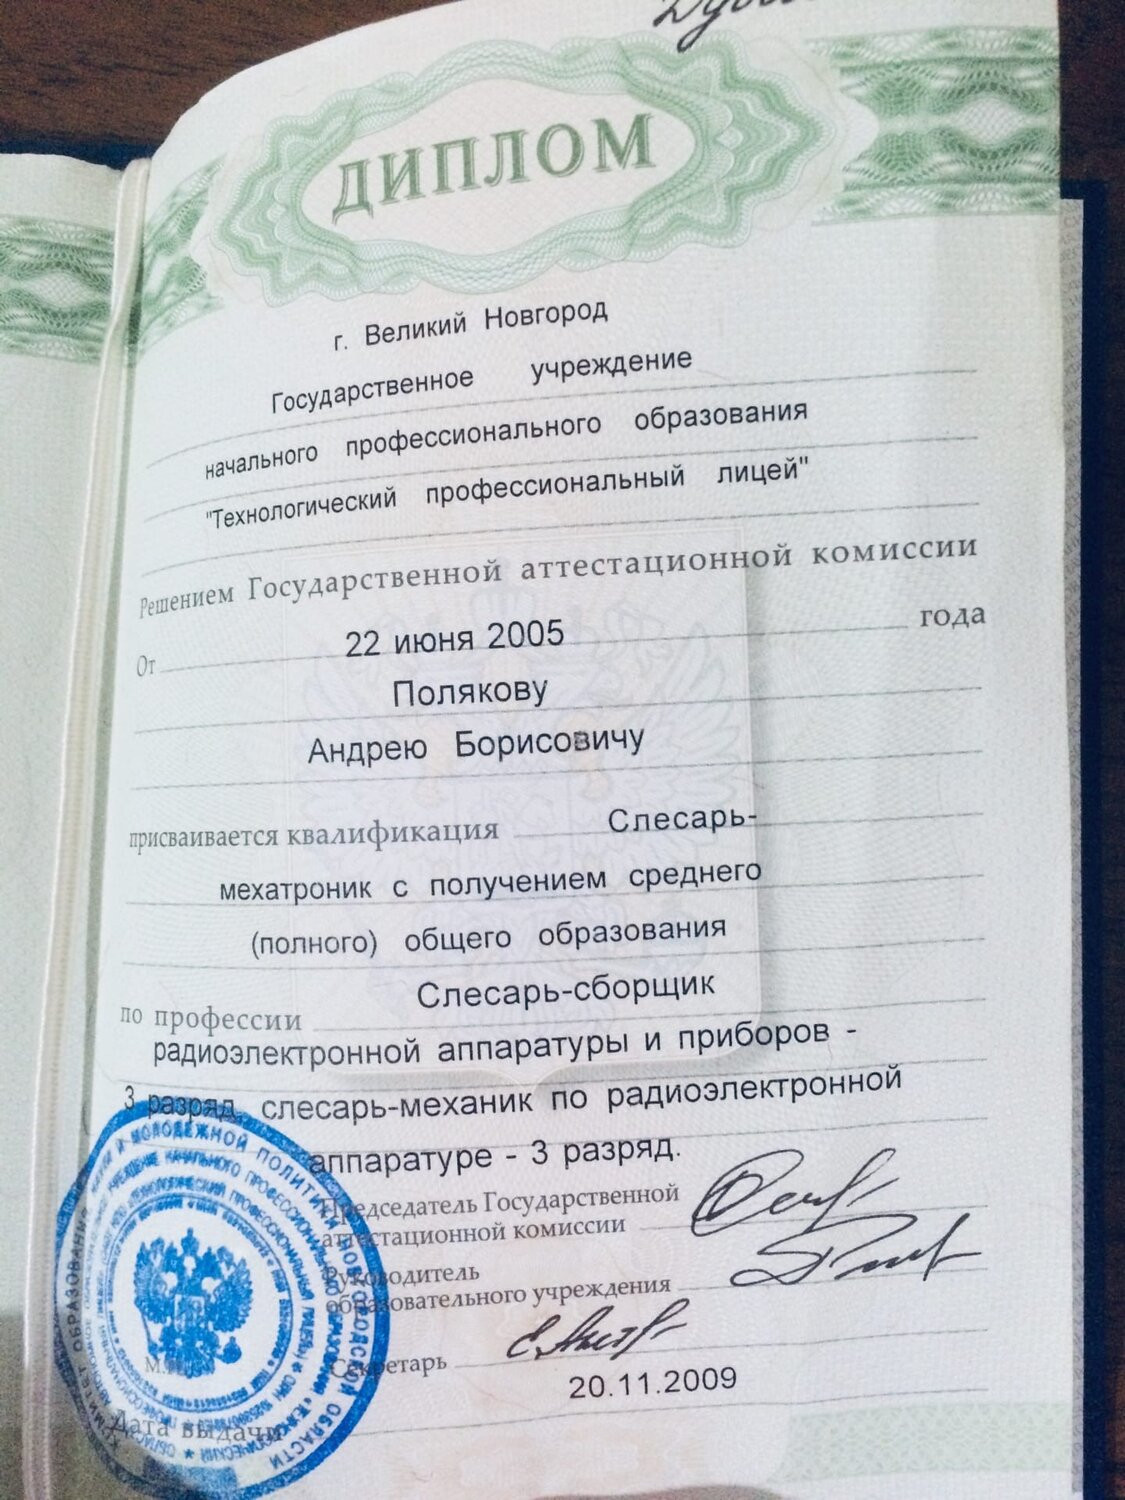 ДИПЛОМ
г. Великий Новгород
Государственное учреждение
начального профессионального образования
"Технологический профессиональный лицей"
Решением Государственной аттестационной комиссии
От 22 июня 2005 года
Полякову
Андрею Борисовичу
присваивается квалификация Слесарь-
мехатроник с получением среднего
(полного) общего образования
по профессии Слесарь-сборщик
радиоэлектронной аппаратуры и приборов -
3 разряд, слесарь-механик по радиоэлектронной
аппаратуре - 3 разряд.
Председатель Государственной
аттестационной комиссии
Руководитель
образовательного учреждения
Секретарь
20.11.2009
М.П.
Дата выдачи
ОБРАЗОВАНИЯ, НАУКИ И МОЛОДЕЖНОЙ ПОЛИТИКИ НОВГОРОДСКОЙ ОБЛАСТИ